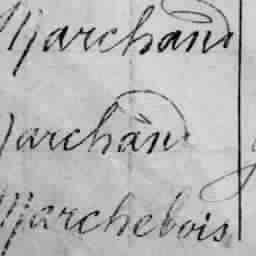 Marchand
Marchand
Marchebois